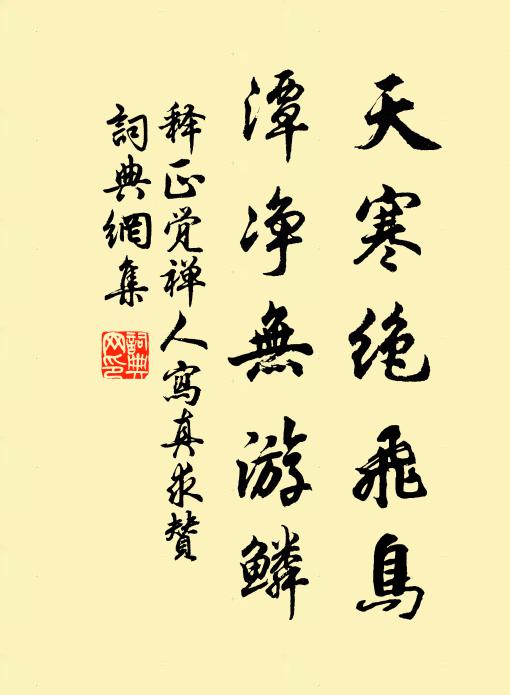 天寒绝飛鳥
潭净無游鱗
释正觉禅人寫真求贊
詞典網集
詞典
网印